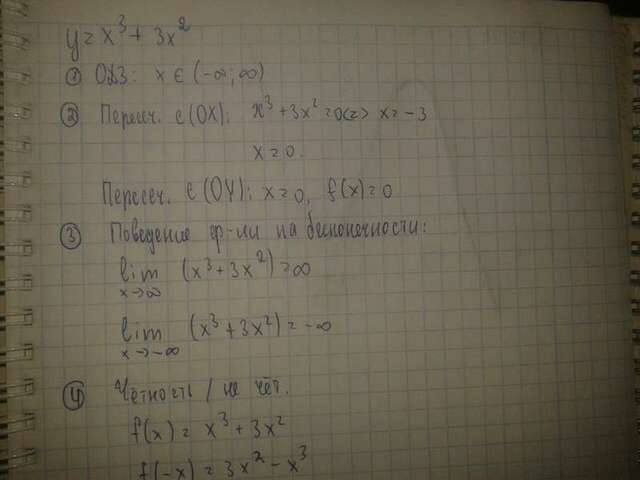 y = x³ + 3x²
① ОДЗ: x ∈ (-∞; ∞)
② Пересеч. с (OX): x³ + 3x² = 0 <=> x = -3
x = 0.
Пересеч. с (OY): x = 0, f(x) = 0
③ Поведение ф-ии на бесконечности:
lim (x³ + 3x²) = ∞
x→∞
lim (x³ + 3x²) = -∞
x→-∞
④ Чётность / не чёт.
f(x) = x³ + 3x²
f(-x) = 3x² - x³